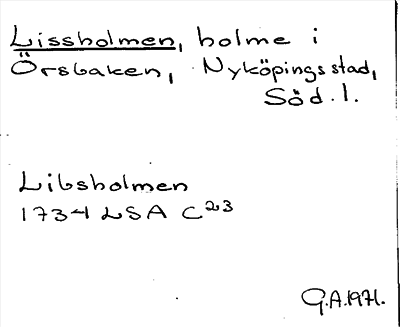 Lissholmen, holme i
Örsbaken, Nyköpings stad,
Söd. l.
Libsholmen
1734 LSA C23
G.A. 1971.